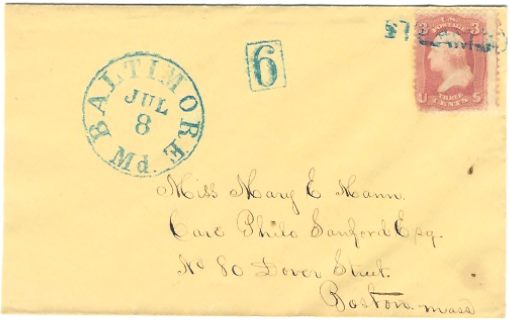 BALTIMORE Md.
JUL
8
6
3 U.S. 3
POSTAGE
THREE
U CENTS S
Miss Mary E Mann.
Care Philo Sanford Esq.
No 80 Dover Street.
Boston mass